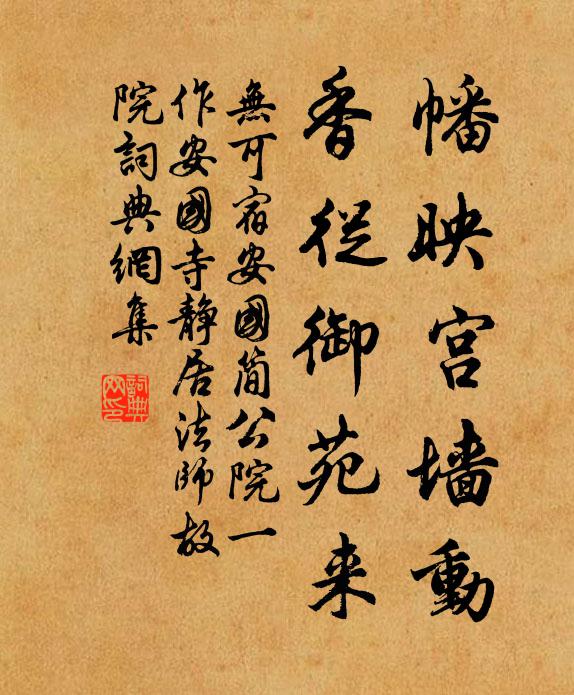 幡映宫墙動
香從御苑来
無可宿安國簡公院一
作安國寺静居法師故
院詞典網集
詞典網印